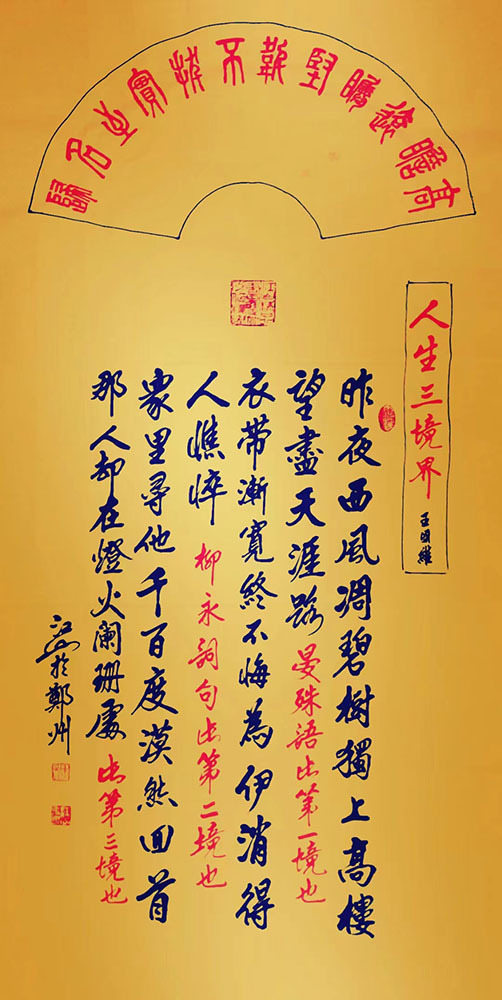 高瞻遠矚堅韌不拔實至名歸
人生三境界 王国維
昨夜西風凋碧樹獨上高樓
望盡天涯路 晏殊語此第一境也
衣帶漸寬終不悔為伊消得
人憔悴 柳永詞句此第二境也
衆里尋他千百度漠然回首
那人却在燈火闌珊處 此第三境也
於鄭州